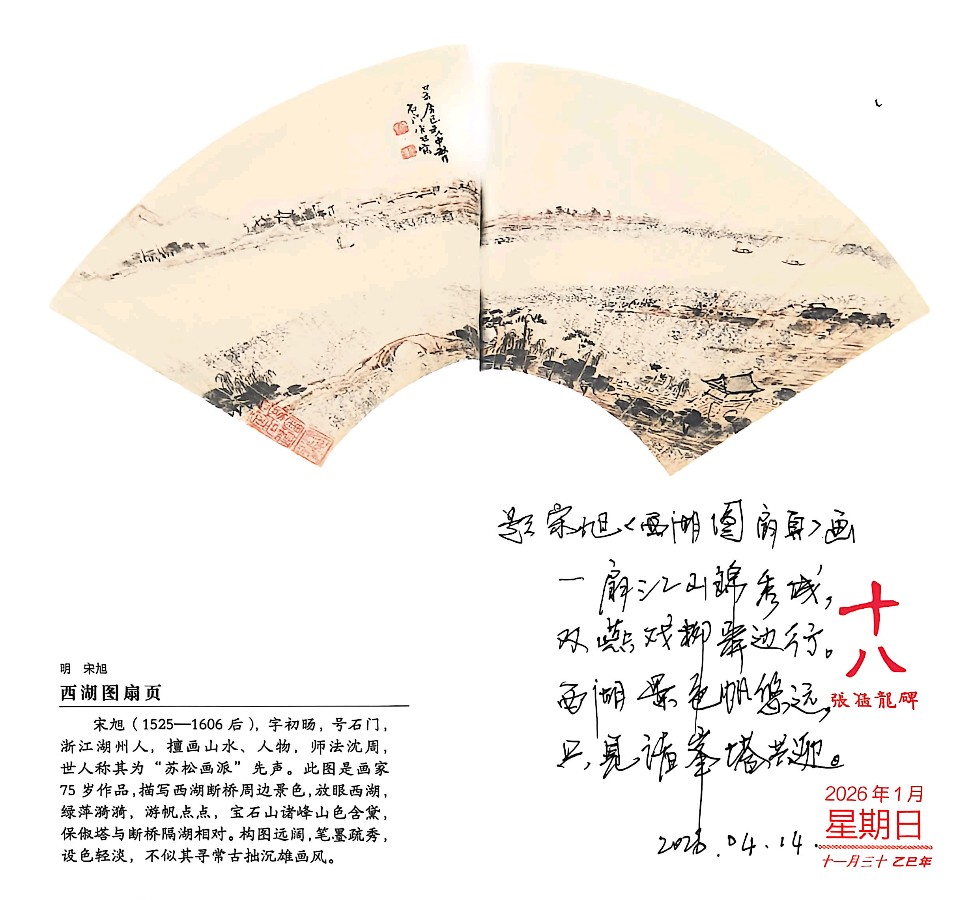 明 宋旭
西湖图扇页
宋旭（1525—1606 后），字初旸，号石门，
浙江湖州人，擅画山水、人物，师法沈周，
世人称其为“苏松画派”先声。此图是画家
75 岁作品，描写西湖断桥周边景色，放眼西湖，
绿萍漪漪，游帆点点，宝石山诸峰山色含黛，
保俶塔与断桥隔湖相对。构图远阔，笔墨疏秀，
设色轻淡，不似其寻常古拙沉雄画风。
题宋旭《西湖图扇页》画
一扇江山锦秀城，
双燕戏柳翠边行。
西湖景色帆悠远，
只见诸峯塔共迎。
2026.04.14.
十八
張猛龍碑
2026 年 1 月
星期日
十一月三十 乙巳年